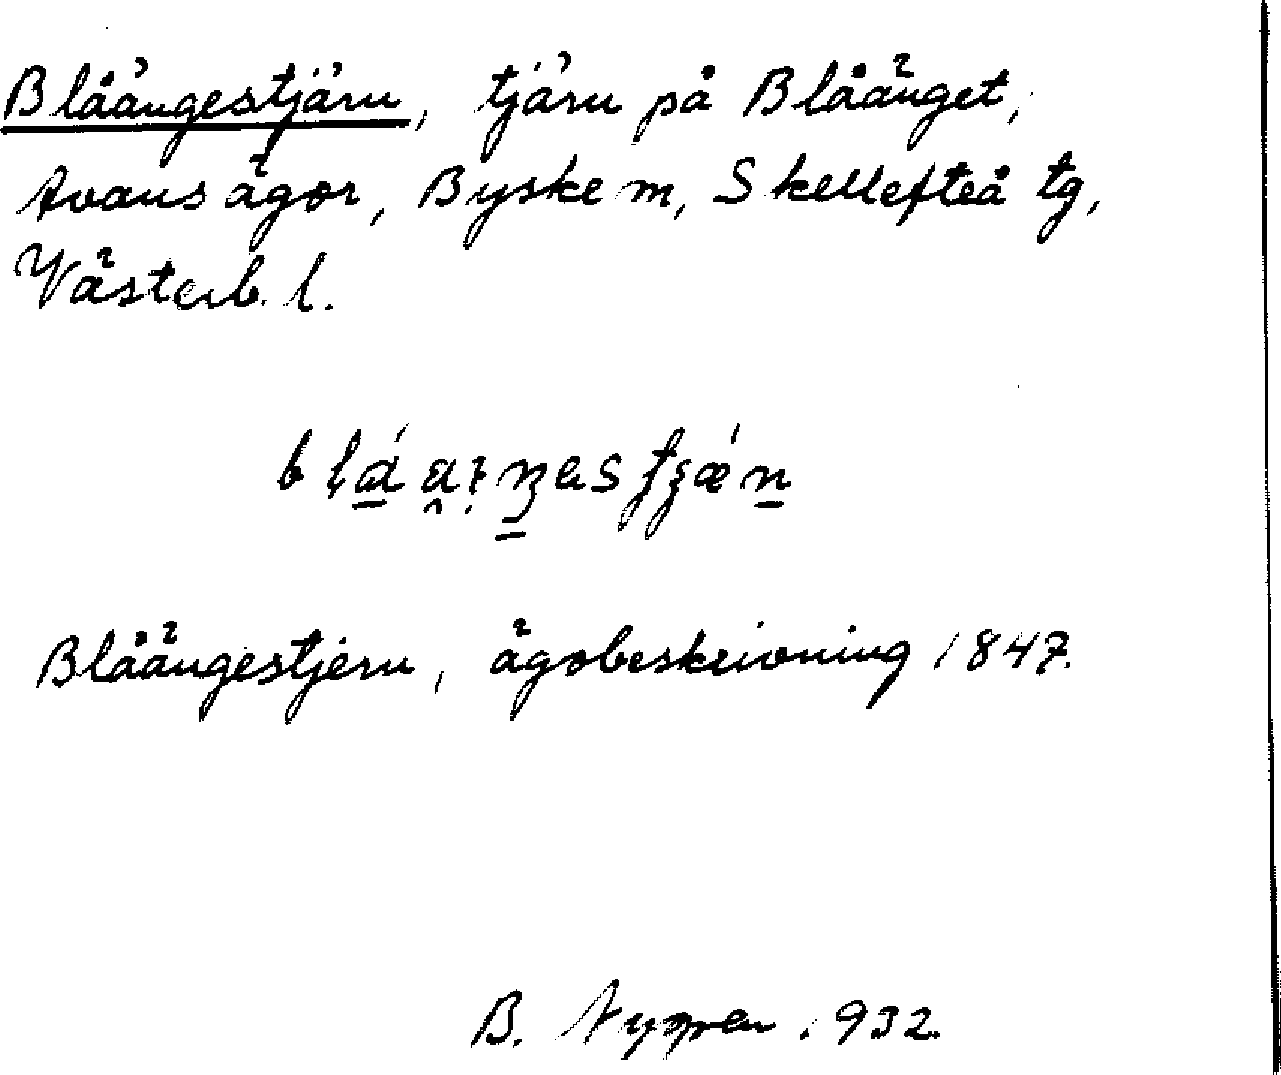 Blåängestjärn, tjärn på Blåänget,
Avans ägor, Byske m, Skellefteå tg,
Västerb. l.
Blåängestjern, ägobeskrivning 1847.
B. Nygren 1932.